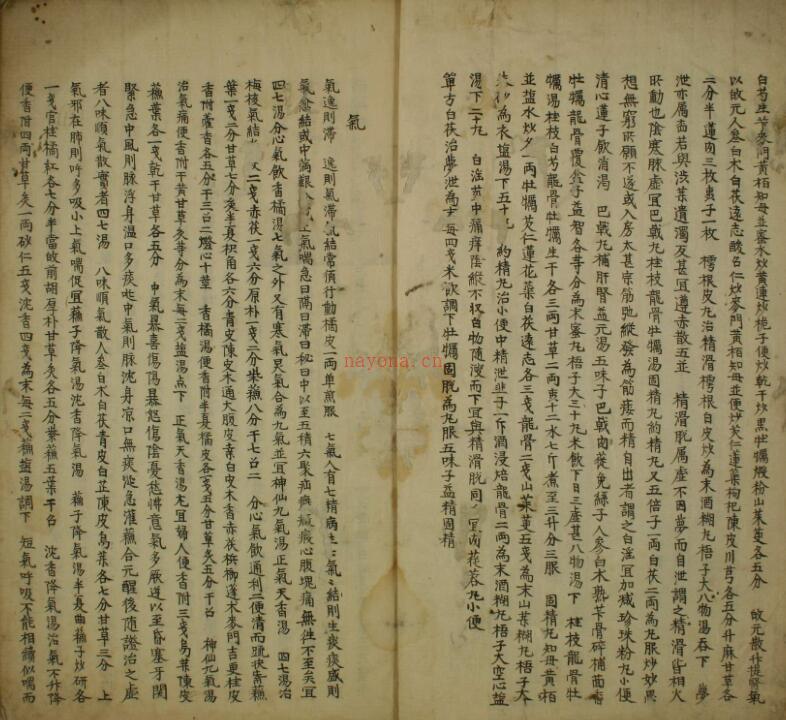 白芍生芐麥門黃栢知母並姜水炒黃連炒梔子便炒乾干炒黑牡蠣煆粉山茱萸各五分 啟元散升提腎氣
以啟元人參白朮白茯遠志酸棗仁炒麥門黃栢知母並便炒芡仁蓮蕊枸杞陳皮川芎各五分升麻甘草各
二分半蓮肉三枚棗子一枚 樗根皮丸治精滑樗根白皮炒為末酒糊丸梧子大八物湯吞下 夢
泄亦属遺濁友甚宜遵赤散五並 精滑脫属虛不因夢而自泄謂之精滑皆相火
所動也陰寒脉虛宜巴戟丸桂枝龍骨牡蠣湯固精丸約精丸又五倍子一両白茯二両為丸服炒妙 思
想無窮所願不遂或入房太甚宗筋弛縱發為筋痿而精自出者謂之白淫宜加减珍珠粉丸小便
清心蓮子飲消渴 巴戟丸補肝腎益元湯五味子巴戟肉蓯兔絲子人參白朮熟芐骨碎補茴香
牡蠣龍骨覆盆子益智各等分為末蜜丸梧子大三十丸米飲下日三虛甚八物湯下 桂枝龍骨牡
蠣湯桂枝白芍龍骨牡蠣生干各三両甘草二両棗十二水七升煮至三升分三服 固精丸知母黃栢
並盐水炒各一両牡蠣芡仁蓮花蕊白茯遠志各三戔龍骨二戔山茱萸五戔為末山藥糊丸梧子大
朱砂為衣盐湯下五十丸 約精丸治小便中精泄韭子一斤酒浸焙龍骨二両為末酒糊丸梧子大空心盐
湯下二十九 白淫莖中痛痒陰縱不收白物随溲而下宜與精滑脫同 小便
單方白茯治夢泄為末每四戔米飲調下牡蠣固脫為丸服五味子益精固精
氣
氣逸則滯 逸則氣滯氣結當償行動橘皮一両單煎服 七氣人有七精病生七氣氣結則生痰痰盛則
氣愈結或中滿上氣喘急曰隔曰滞曰秘曰中以至五積六聚疝癥瘕心腹塊痛無徃不至矣宜
四七湯分心氣飲香橘湯七氣之外又有寒氣炅氣合為九氣並宜神仙九氣湯正氣天香湯 四七湯治
梅核氣結 二戔赤茯一戔六分厚朴一戔二分紫蘓八分干七召二 分心氣飲通利二便清而疏快紫蘓
葉一戔二分甘草七分半夏枳角各六分青皮陳皮木通大腹皮桒白皮木香赤茯梹榔蓬朮麥門吉更桂皮
香附藿香各五分干三召二燈心十莖 香橘湯便香附半夏橘皮各戔五分甘草炙五分干召 神仙元氣湯
治氣痛便香附干黃甘草炙等分為末每二戔盐湯点下 正氣天香湯尤宜婦人便香附三戔烏藥陳皮
蘓葉各一戔乾干甘草各五分 中氣暴喜傷陽暴怒傷陰憂愁怫意氣多厥逆以至昏塞牙関
緊急中風則脉浮身温口多痰涎中氣則脉沈身凉口無痰涎急灌蘓合元醒後随證治之虛
者八味順氣散實者四七湯 八味順氣散人參白朮白茯青皮白芷陳皮烏藥各七分甘草三分 上
氣邪在肺則呼多吸小上氣喘促宜蘓子降氣湯沈香降氣湯 蘓子降氣湯半夏曲蘓子炒研各
一戔官桂橘紅各七分半當故前胡厚朴甘草炙各五分紫蘓五葉干召 沈香降氣湯治氣不升降
便香附四両甘草炙一両砂仁五戔沈香四戔為末每二戔蘓盐湯調下 短氣呼吸不能相續似喘而
nayona.cn